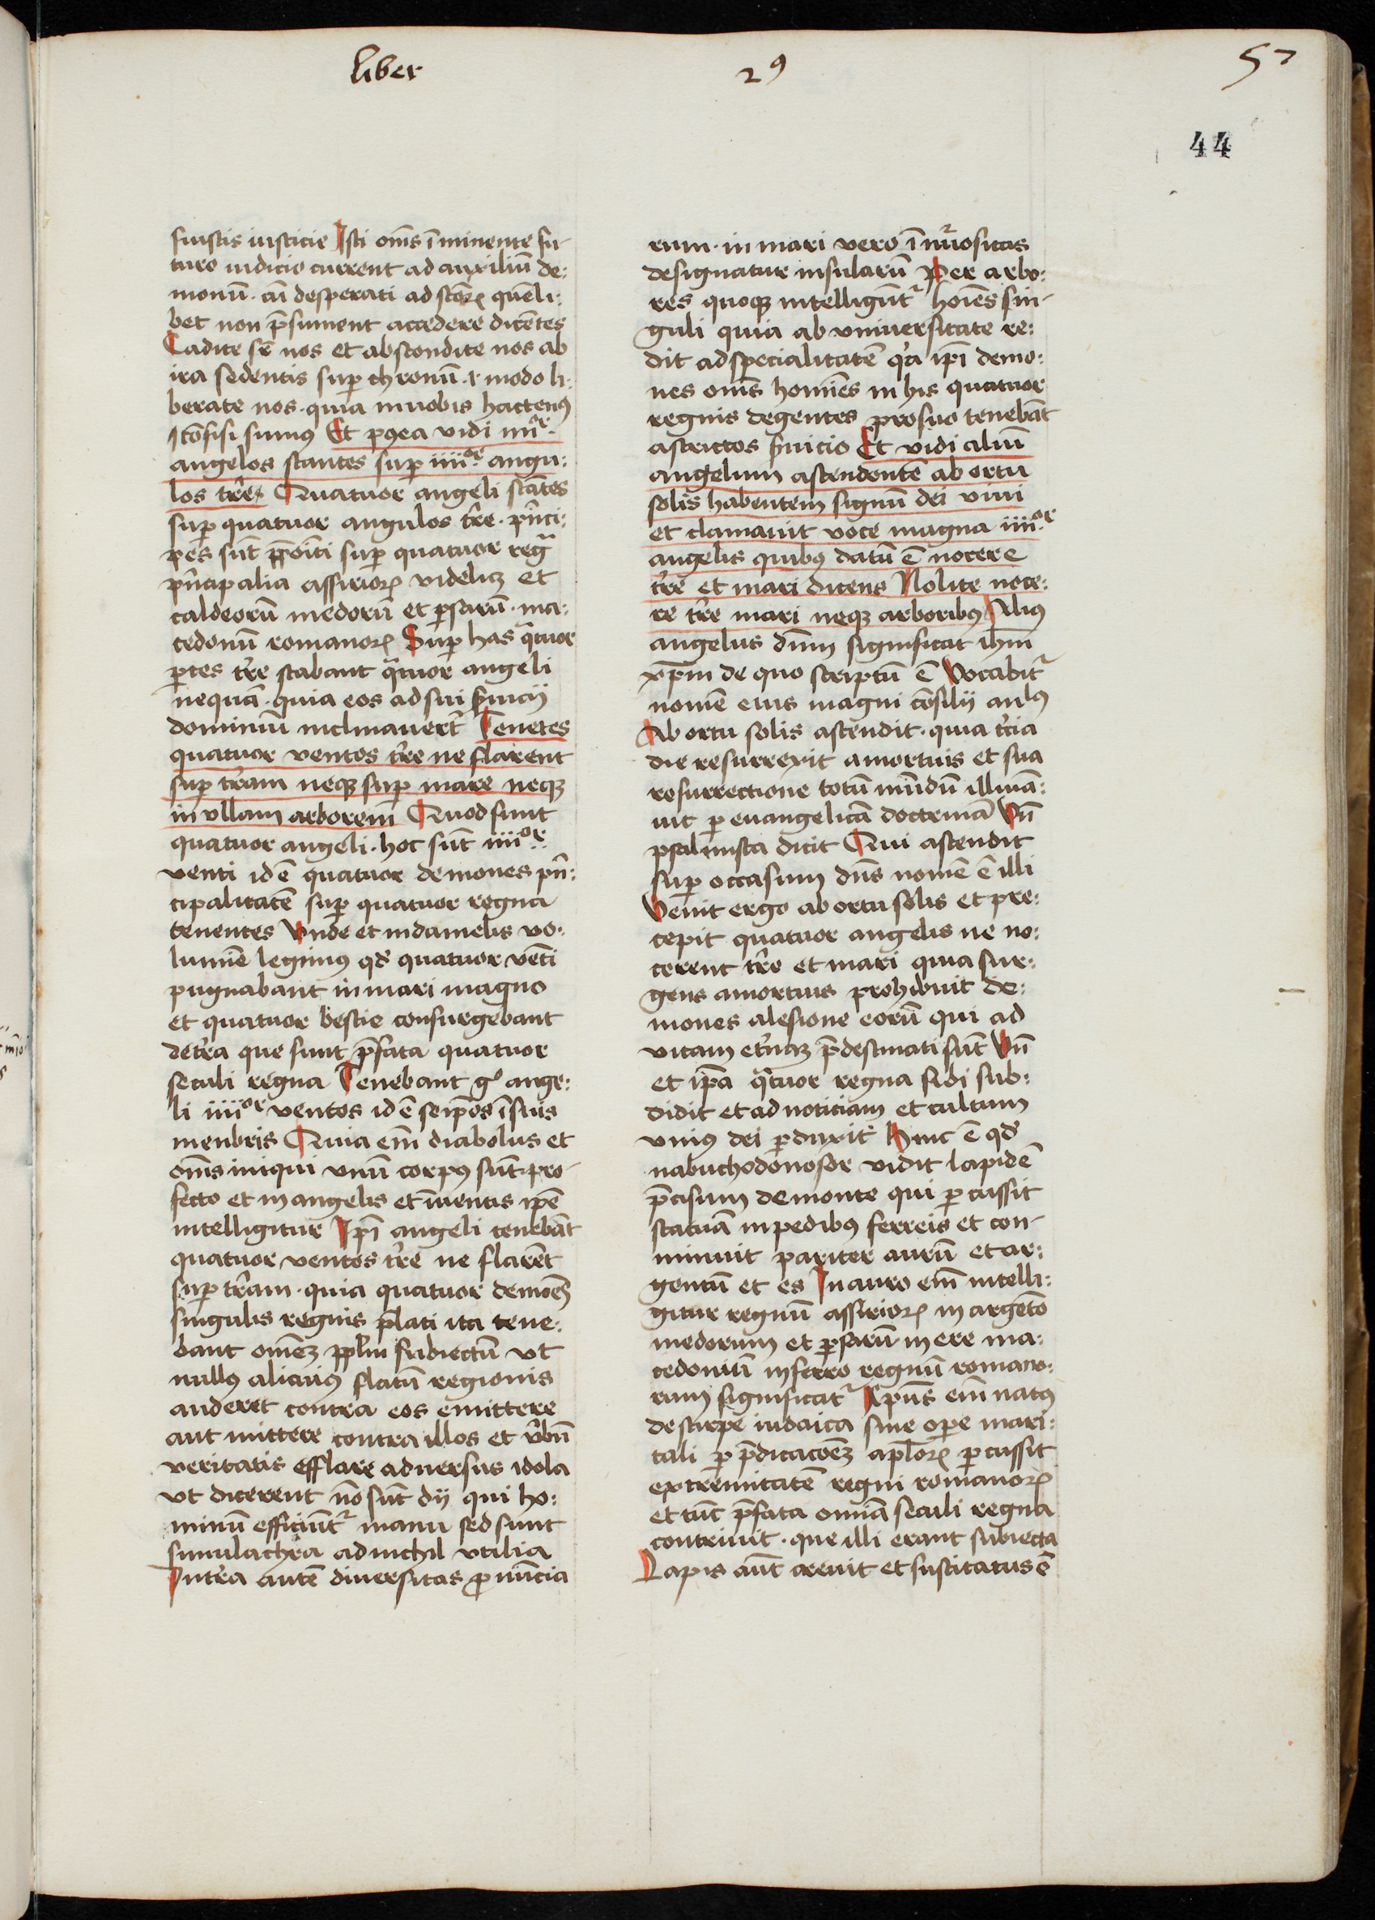 liber
29
57
44
suistis iusticie Isti om̄s īminente fu-
turo iudicio current ad auxiliū de:
monū. cū desperati ad sc̄torꝝ quēli:
bet non p̄sument accedere dicētes
Cadite sr̄ nos et abscondite nos ab
ira sedentis suꝑ thronū. et modo li-
berate nos. quia in uobis hactenꝰ
cōfisi sumꝰ Et p9ea vidi iiiior
angelos stantes suꝑ iiiior angu:
los tr̄re Quatuor angeli stātes
suꝑ quatuor angulos tr̄re. pn̄ci:
pes sūt p̄poīti suꝑ quatuor regͣ
pn̄cipalia assiriorꝝ videlicꝫ et
caldeorū medorū et ꝑsarū. ma:
cedonū romanorꝝ Suꝑ has qͣtuor
ꝑtes tr̄re stabant qͣtuor angeli
nequā. quia eos ad sui s̄uicij
dominiū inclinauert̄ Tenētes
quatuor ventos tr̄re ne flarent
suꝑ tr̄ram neqꝫ suꝑ mare neqꝫ
in vllam arborem̄ Quod sunt
quatuor angeli. hoc sūt iiiior
venti id ē quatuor demones pn̄:
cipalitatē suꝑ quatuor regna
tenentes Vnde et in danielis vo:
lumīe legimꝰ qd̄ quatuor vēti
pugnabant in mari magno
et quatuor bestie consurgebant
de tr̄ra que sunt p̄fata quatuor
seculi regna Tenebant gͦ ange:
li iiiior ventos id ē seip̄os ī suis
menbris Quia em̄ diabolus et
om̄s iniqui vnū corpꝰ sūt. pro-
fecto et in angelis et in uentis ip̄e
intelligitur Ip̄i angeli tenebāt
quatuor ventos tr̄re ne flarēt
suꝑ tr̄ram. quia quatuor demōes
singulis regnis p̄lati ita tene:
bant om̄eꝫ pp̄lm subiectū vt
nullꝰ alicuiꝰ flatū regionis
auderet contra eos emittere
aut mittere contra illos et v̄bū
veritatis efflare aduersus idola
vt dicerent nō sūt dij qui ho:
minū efficiūt᷑ manu sed sunt
simulachra ad nichil vtilia
In tr̄ra autē diuersitas ꝓuincia
rum. in mari vero īnūositas
designatur insularū Per arbo:
res quoqꝫ intelligūt᷑ hoīes sin-
guli quia ab vniuersitate re:
dit ad specialitatē qͣ ip̄i demo:
nes om̄s homīes in his quatuor
regnis degentes pro suo tenebāt
astrictos s̄uicio Et vidi aliū
angelum ascendentē ab ortu
solis habentem signū dei viui
et clamauit voce magna iiiior
angelis quibꝰ datū ē nocere
tr̄re et mari dicens Nolite noce:
re tr̄re mari neqꝫ arboribꝰ Aliꝰ
angelus dn̄m significat ihm
xp̄m de quo scriptū ē Vocabit᷑
nomē eius magni cōsilij an̄lꝰ
Ab ortu solis ascendit. quia tr̄cia
die resurrexit a mortuis et sua
resurrectione totū mūdū illumīa:
uit ꝑ euangelicā doctrinā Vn̄
psalmista dicit Qui ascendit
suꝑ occasum dn̄s nomē ē illi
Venit ergo ab ortu solis et pre:
cepit quatuor angelis ne no:
cerent tr̄re et mari quia sur:
gens a mortuis prohibuit de:
mones a lesione eorū qui ad
vitam et̄naꝫ p̄destinati sūt Vn̄
et ip̄a qͣtuor regna fidi sub:
didit et ad noticiam et cultum
vniꝰ dei ꝑduxit Hinc ē qd̄
nabuchodonosor vidit lapidē
p̄cisum de monte qui ꝑcussit
statuā in pedibꝰ ferreis et con-
minuit pariter aurū et ar:
gentū et es In auro em̄ intelli:
gitur regnū assiriorꝝ in argēto
medorum et ꝑsarū in ere ma:
cedoniū in ferro regnū romano:
rum significat᷑ Xp̄us em̄ natꝰ
de stirpe iudaica sine opere mari:
tali ꝑ p̄dicacōeꝫ ap̄lorꝝ ꝑcussit
extremitatē regni romanorꝝ
et tūc p̄fata omīa seculi regna
contriuit. que illi erant subiecta
Lapis aūt creuit et suscitatus ē